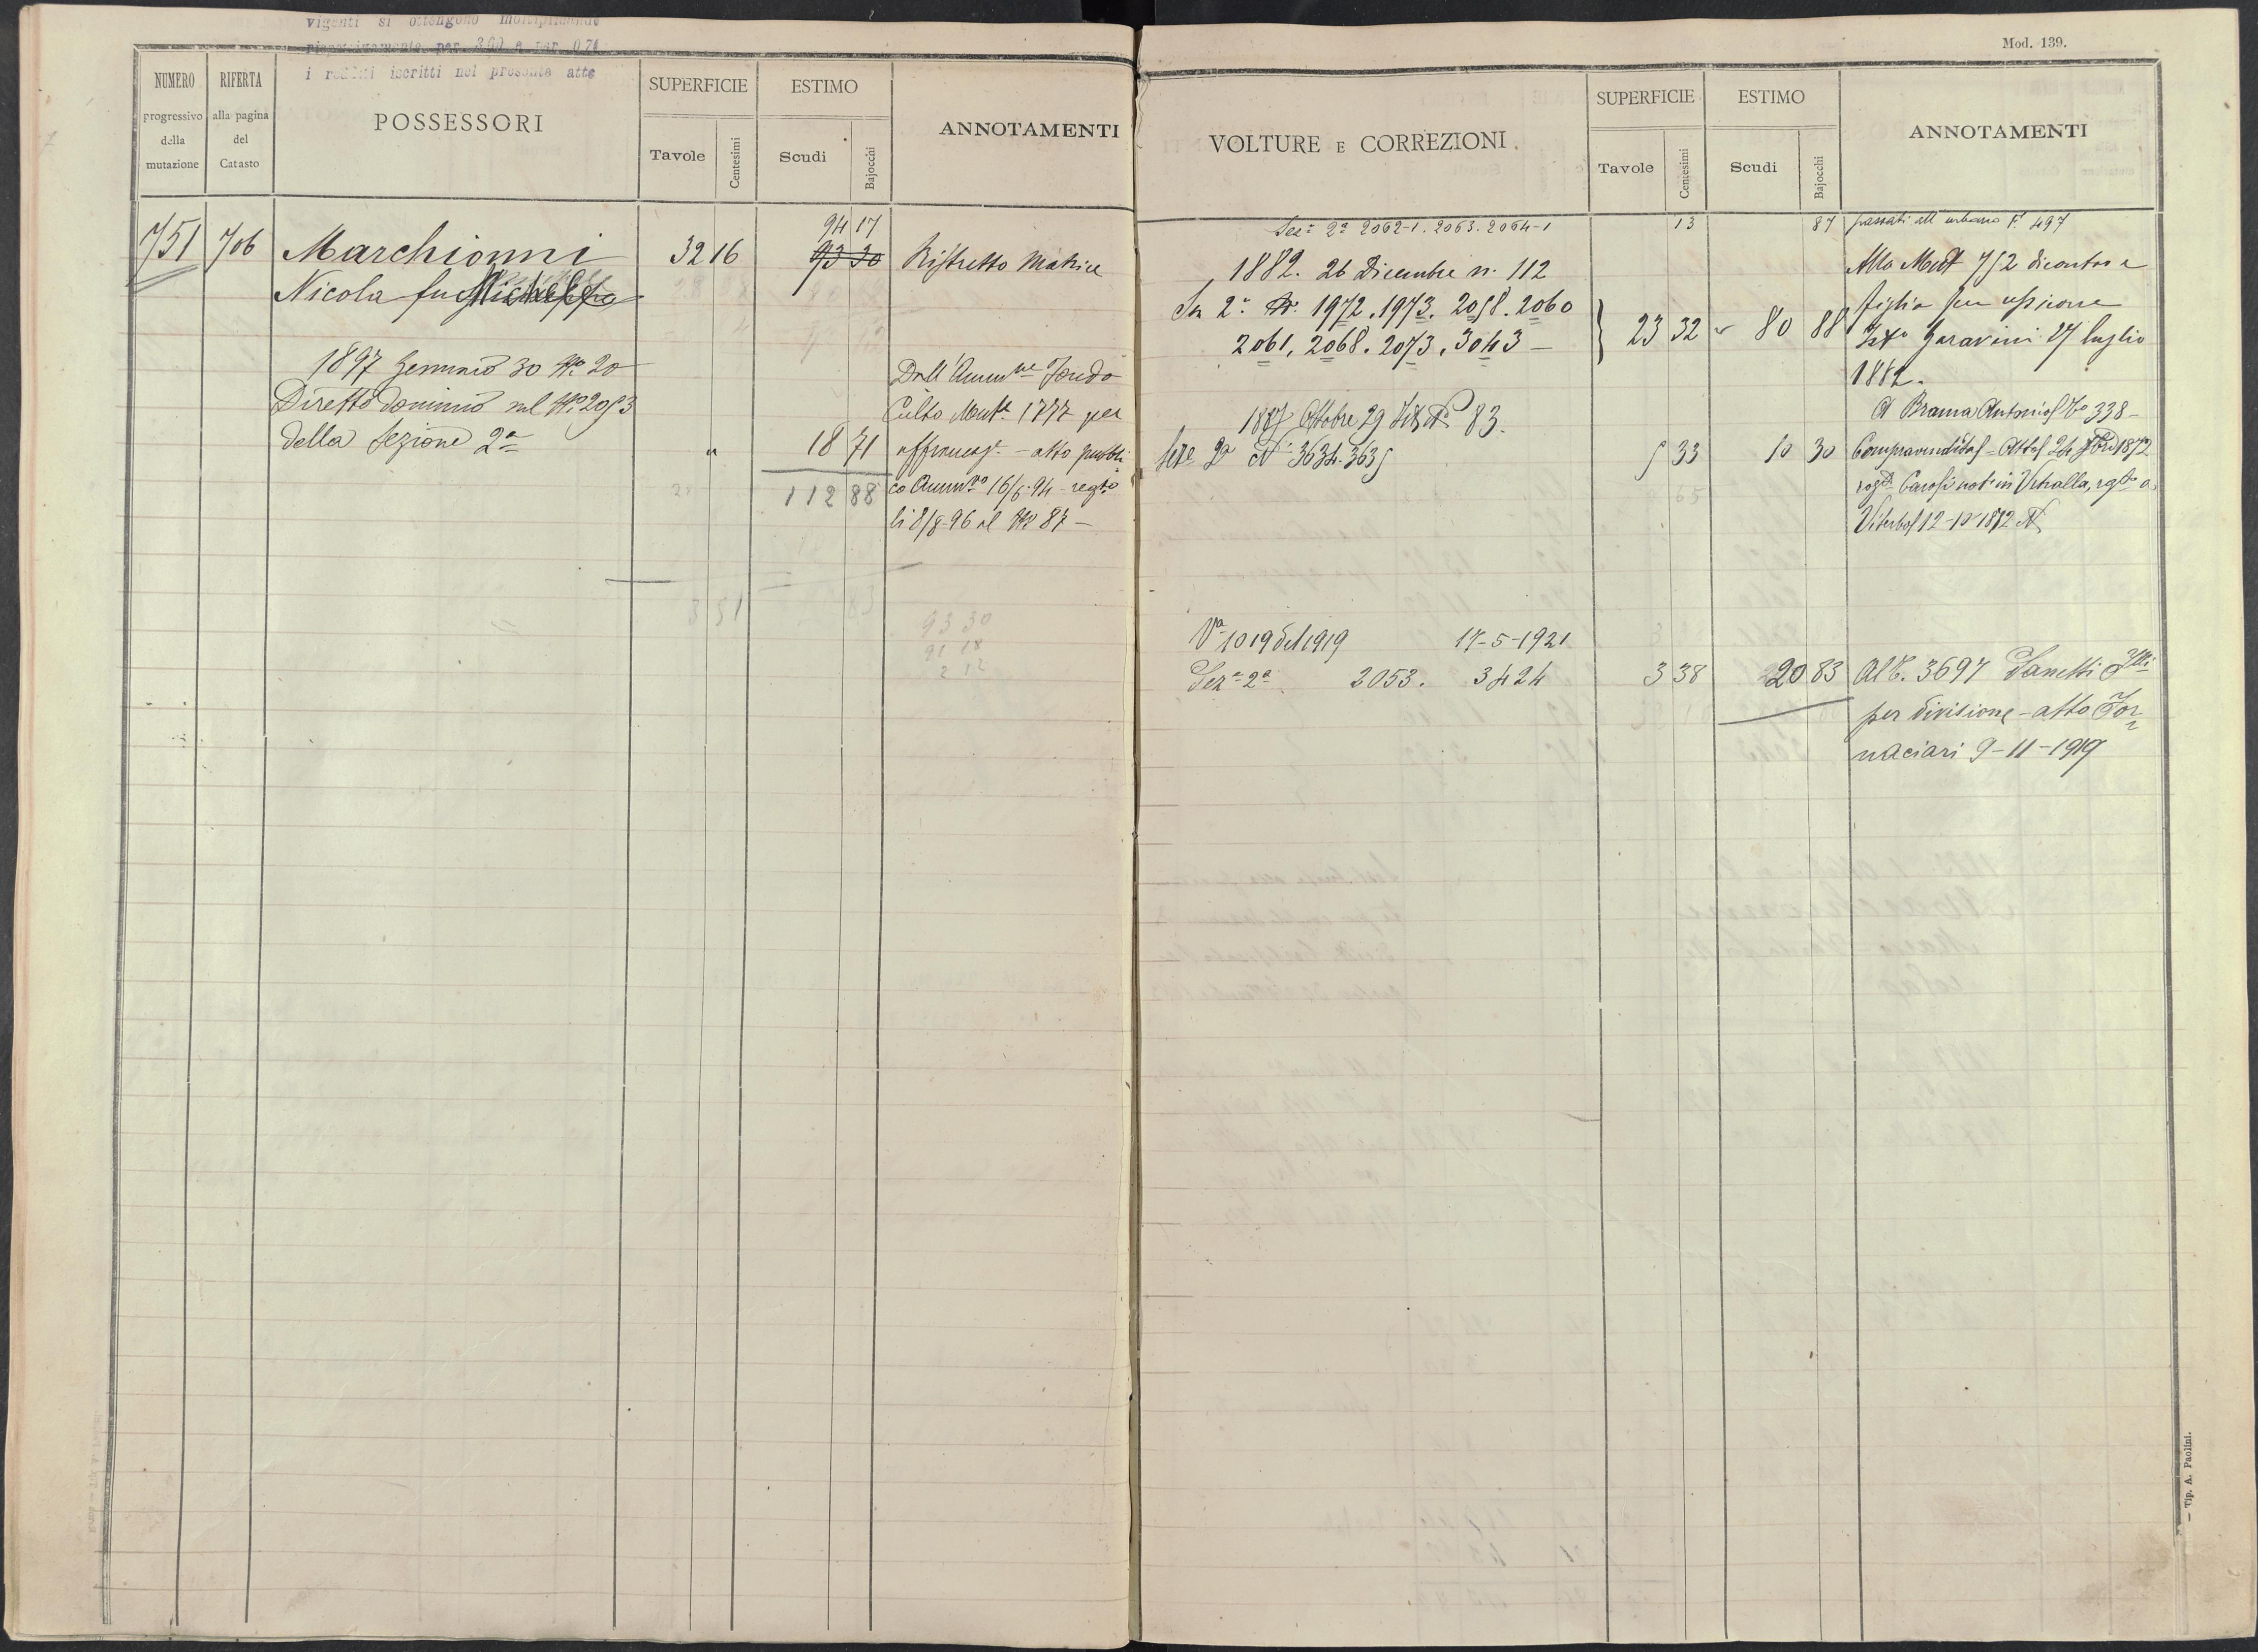 vigenti si ottengono moltiplicando
rispettivamente per 3.60 e per 0.71
i redditi iscritti nel presente atto
NUMERO
progressivo
della
mutazione
RIFERTA
alla pagina
del
Catasto
POSSESSORI
SUPERFICIE
Tavole
Centesimi
ESTIMO
Scudi
Bajocchi
ANNOTAMENTI
94 17
751 706 Marchionni 32 16 93 30 Ristretto Matrice
Nicola fu
1897 Gennaio 30 No. 20
Diretto dominio sul No. 2053
della Sezione 2a
" 18 71
112 88
Dall'Ammne Fondo
Culto Mutt. 1777 per
affrancaze - atto pubbli
co Ammvo 16/6-94 - regto
li 8/8-96 al No 87 -
3 51 83
93 30
91 18
2 12
Mod. 139.
VOLTURE E CORREZIONI
SUPERFICIE
Tavole
Centesimi
ESTIMO
Scudi
Bajocchi
ANNOTAMENTI
Sez. 2a 2062-1. 2063. 2064-1 13 87 passati all urbano F. 497
1882. 26 Dicembre n. 112
2a 1972. 1973. 2058. 2060
2061. 2068. 2073. 3043 -
23 32 80 88
Alla Mut 752
figlia
Garavini 27 luglio
1882.
Ottobre 29 83.
Seze 2a N. 3634. 3635 5 33 10 30
A Brama Antonio 338 -
Compravendita - Atto 24 1872
not. in Vetralla, regto a
Viterbo 12-10-1872 N
Va 1019 del 1919 17-5-1921
Seza 2a 2053. 3424 3 38 20 83 Al C. 3697 Zanetti Flli
per divisione - atto For
naciari 9-11-1919
— Tip. A. Paolini.